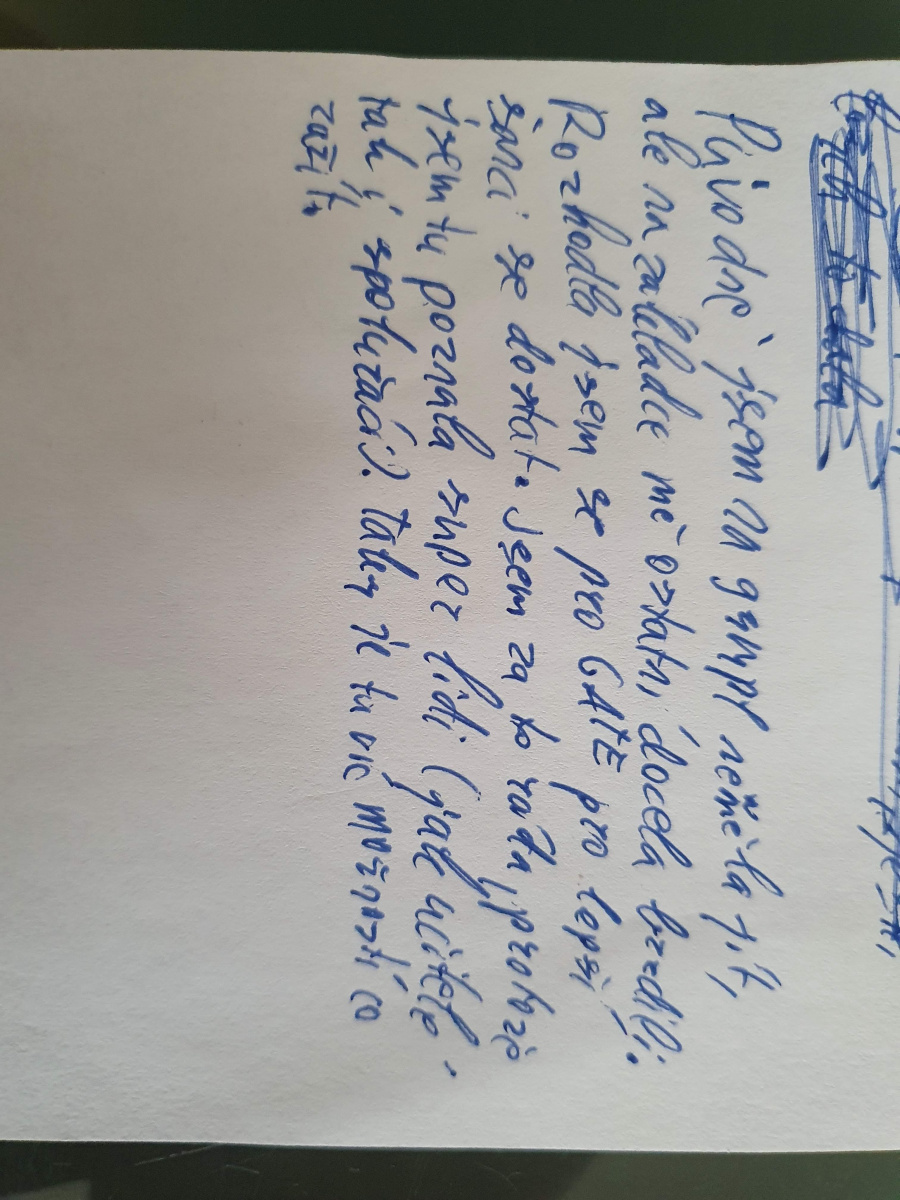 Původně jsem na gympl neměla jít,
ale na základce mě ostatní docela brzdili.
Rozhodla jsem se pro GATE pro lepší
šanci se dostat. Jsem za to ráda, protože
jsem tu poznala super lidi (jak učitele,
tak i spolužáci). Taky je tu víc možností co
zažít.